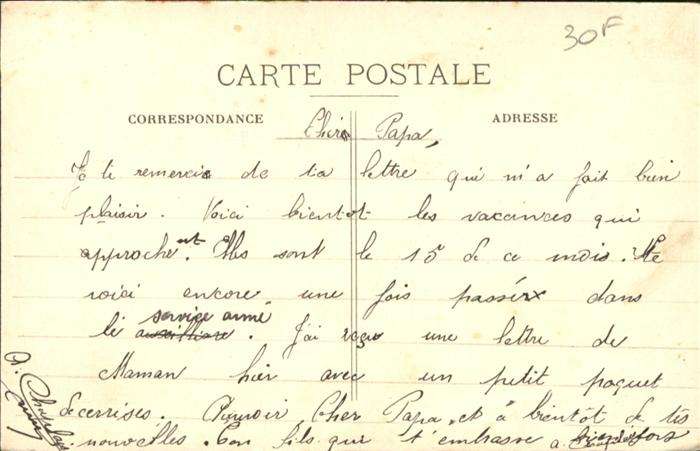 30F
CARTE POSTALE
CORRESPONDANCE
ADRESSE
Cher Papa,
Je te remercie de ta lettre qui m'a fait bien
plaisir. Voici bientot les vacances qui
approchent. Elles sont le 15 de ce mois. Me
voici encore une fois passér dans
le service armé auxilliaire. J'ai reçu une lettre de
Maman hier avec un petit paquet
de cerises. Aurevoir Cher Papa et à bientôt de tes
nouvelles. Ton fils qui t'embrasse
A.